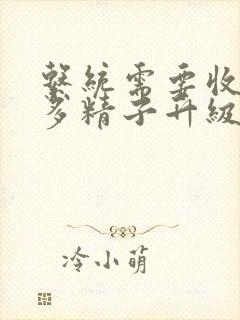 繫統需要收
多精子升級
冷小萌